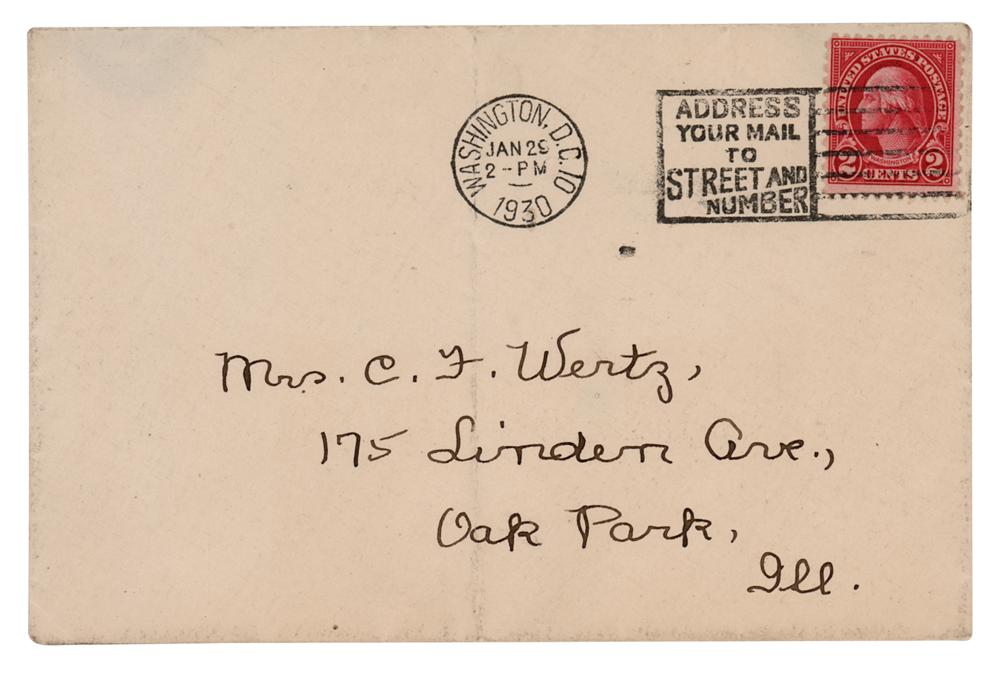 WASHINGTON, D.C. 10
JAN 29
2 - PM
1930
ADDRESS
YOUR MAIL
TO
STREET AND
NUMBER
UNITED STATES POSTAGE
WASHINGTON
2 CENTS 2
Mrs. C. F. Wertz,
175 Linden Ave.,
Oak Park,
Ill.